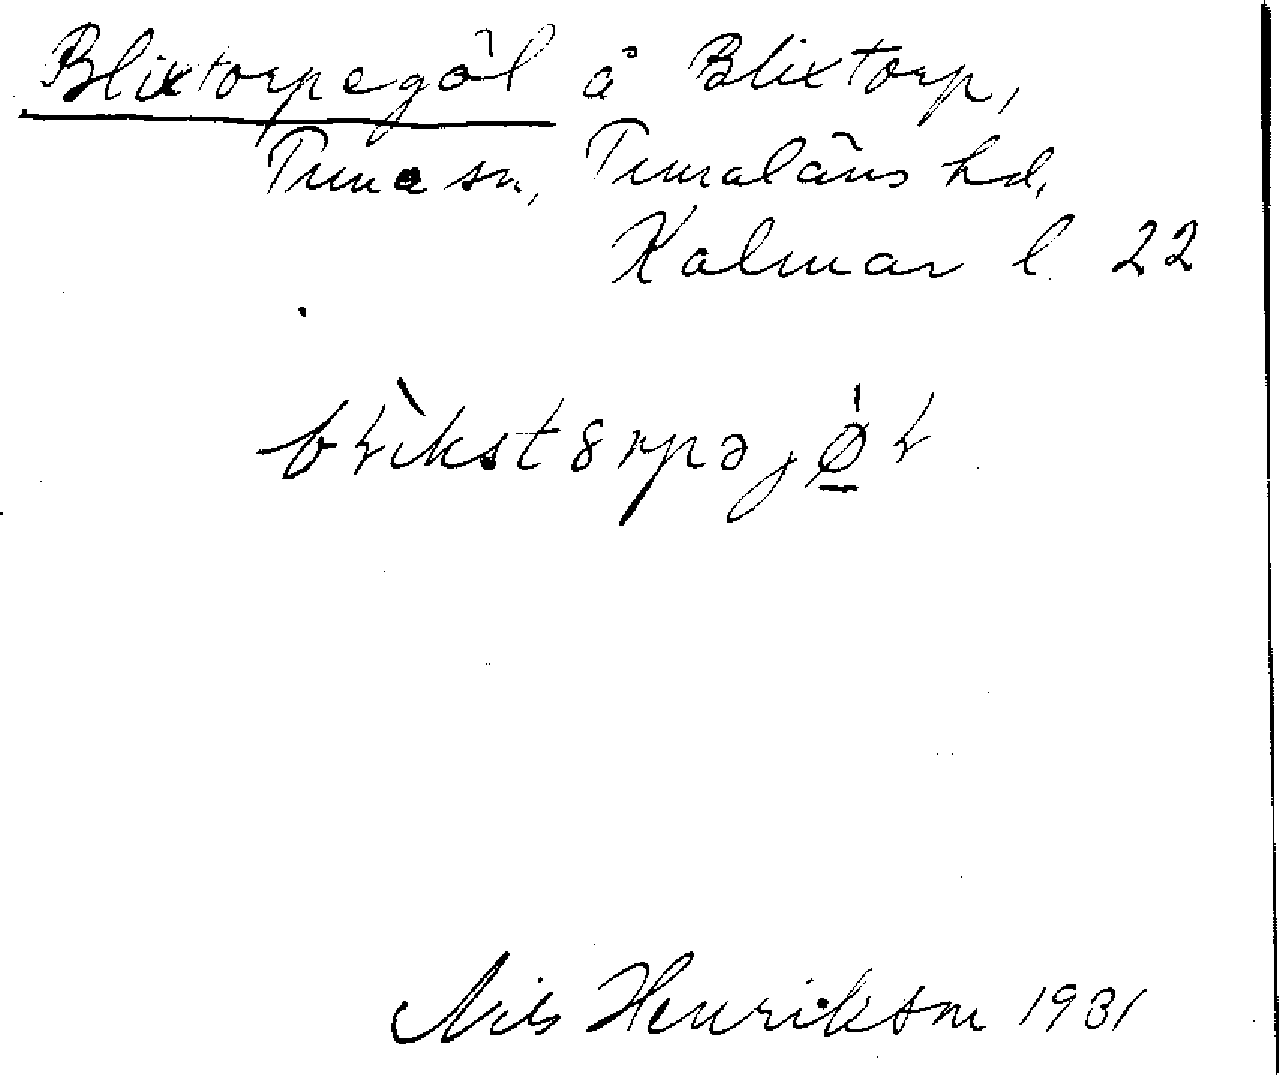 Blixtorpegöl å Blixtorp,
Tuna sn, Tunaläns hd,
Kalmar l. 22
Nils Henrikson 1931